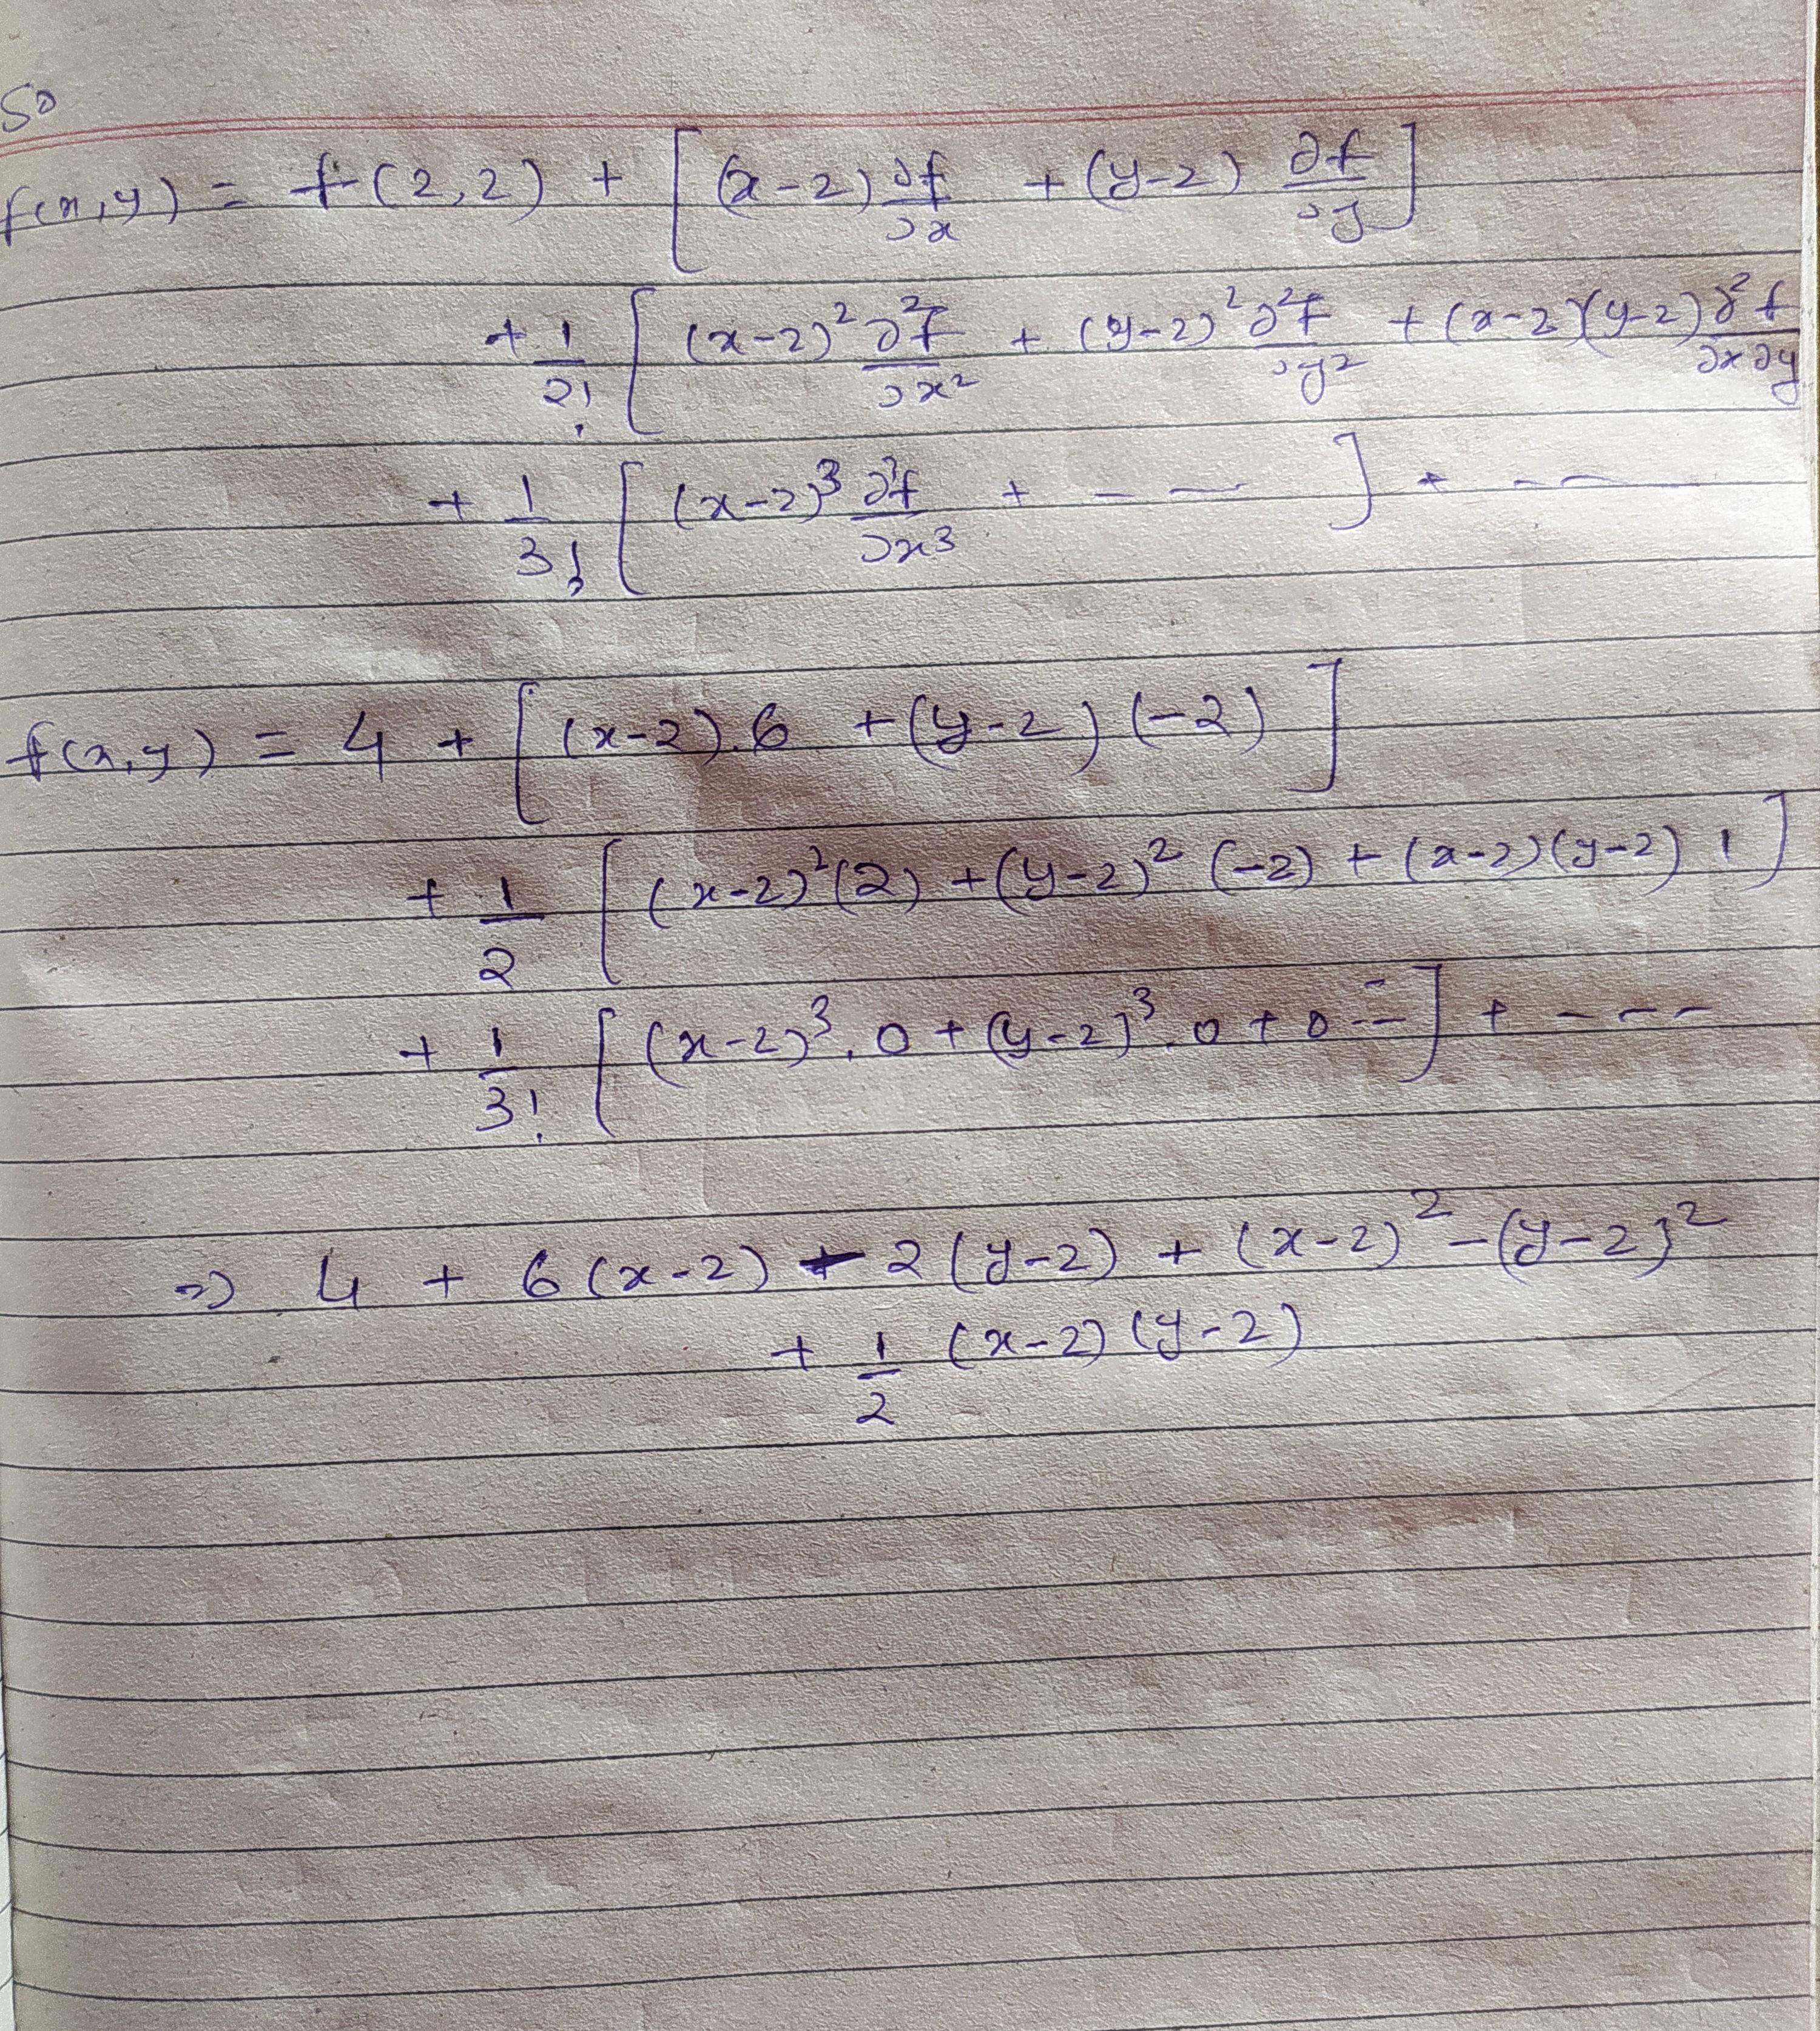 So
f(x,y) = f(2,2) + [(x-2) ∂f/∂x + (y-2) ∂f/∂y]
+ 1/2! [(x-2)² ∂²f/∂x² + (y-2)² ∂²f/∂y² + (x-2)(y-2) ∂²f/∂x∂y
+ 1/3! [(x-2)³ ∂³f/∂x³ + - - ] + - - -
f(x,y) = 4 + [(x-2).6 + (y-2)(-2)]
+ 1/2 [(x-2)²(2) + (y-2)²(-2) + (x-2)(y-2) 1]
+ 1/3! [(x-2)³.0 + (y-2)³.0 + 0 - - -] + - - -
=> 4 + 6(x-2) - 2(y-2) + (x-2)² - (y-2)²
+ 1/2 (x-2)(y-2)